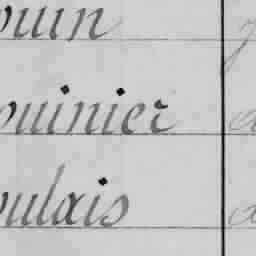 ouin
ouinier
oulais